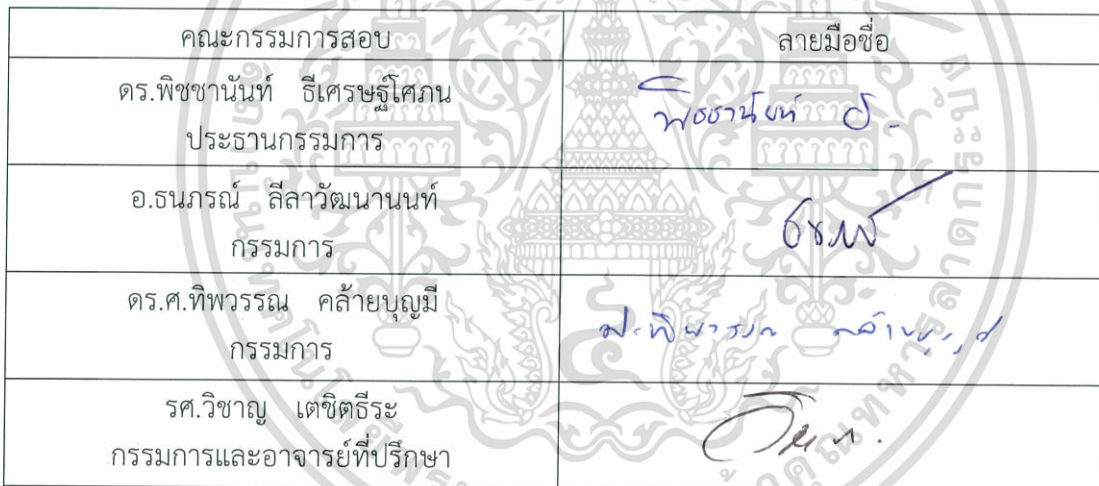 คณะกรรมการสอบ ลายมือชื่อ
ดร.พิชชานันท์ ธีเศรษฐ์โศภน
ประธานกรรมการ
พิชชานันท์ ธ.
อ.ธนภรณ์ ลีลาวัฒนานนท์
กรรมการ
ดร.ศ.ทิพวรรณ คล้ายบุญมี
กรรมการ
รศ.วิชาญ เตชิตธีระ
กรรมการและอาจารย์ที่ปรึกษา